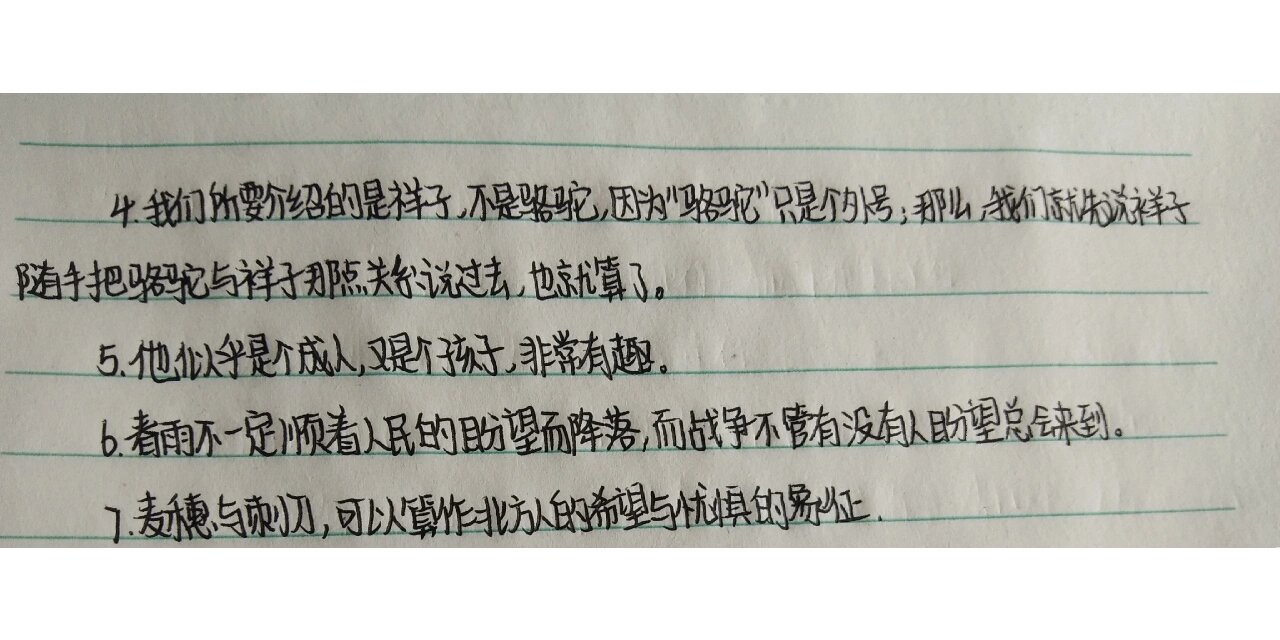 4.我们所要介绍的是祥子,不是骆驼,因为"骆驼"只是个外号;那么,我们就先说祥子
随手把骆驼与祥子那点关系说过去,也就算了。
5.他似乎是个成人,又是个孩子,非常有趣。
6.春雨不一定顺着人民的盼望而降落,而战争不管有没有人盼望总会来到。
7.麦穗与刺刀,可以算作北方人的希望与忧惧的象征.